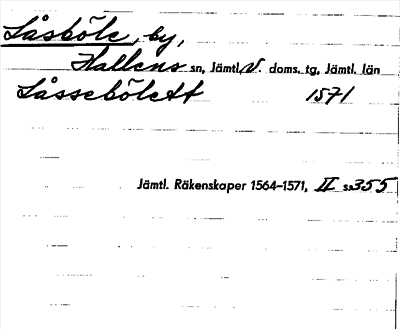 Låsböle, by,
Hallens sn, Jämtl. V. doms. tg, Jämtl. län
Låssebölett 1571
Jämtl. Räkenskaper 1564–1571, II s. 355